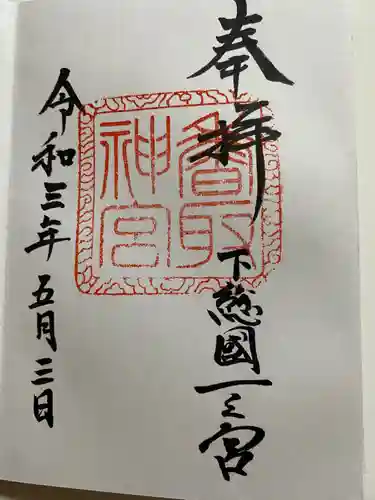 奉拝
下総國一之宮
香取神宮
令和三年五月三日